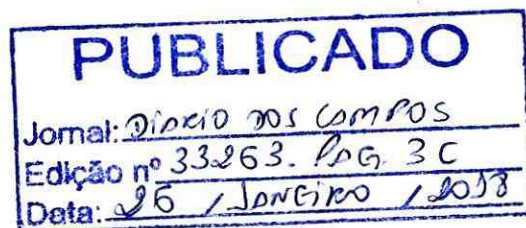 PUBLICADO
Jornal: DIÁRIO DOS CAMPOS
Edição nº 33263. PAG. 3C
Data: 26 / JANEIRO / 2018